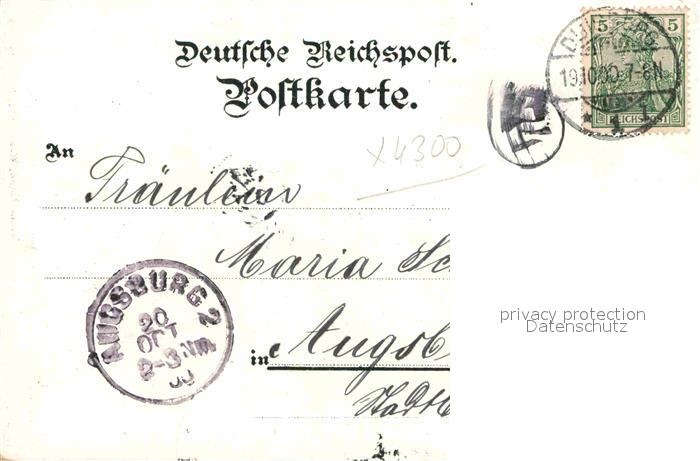 Deutsche Reichspost.
Postkarte.
5 5
REICHSPOST
19.10.00. 7-8N.
1
An
x4300
Fräulein
Maria Sc
AUGSBURG 2
20
OCT
2-3 Nm
00
in Augsb
privacy protection
Datenschutz